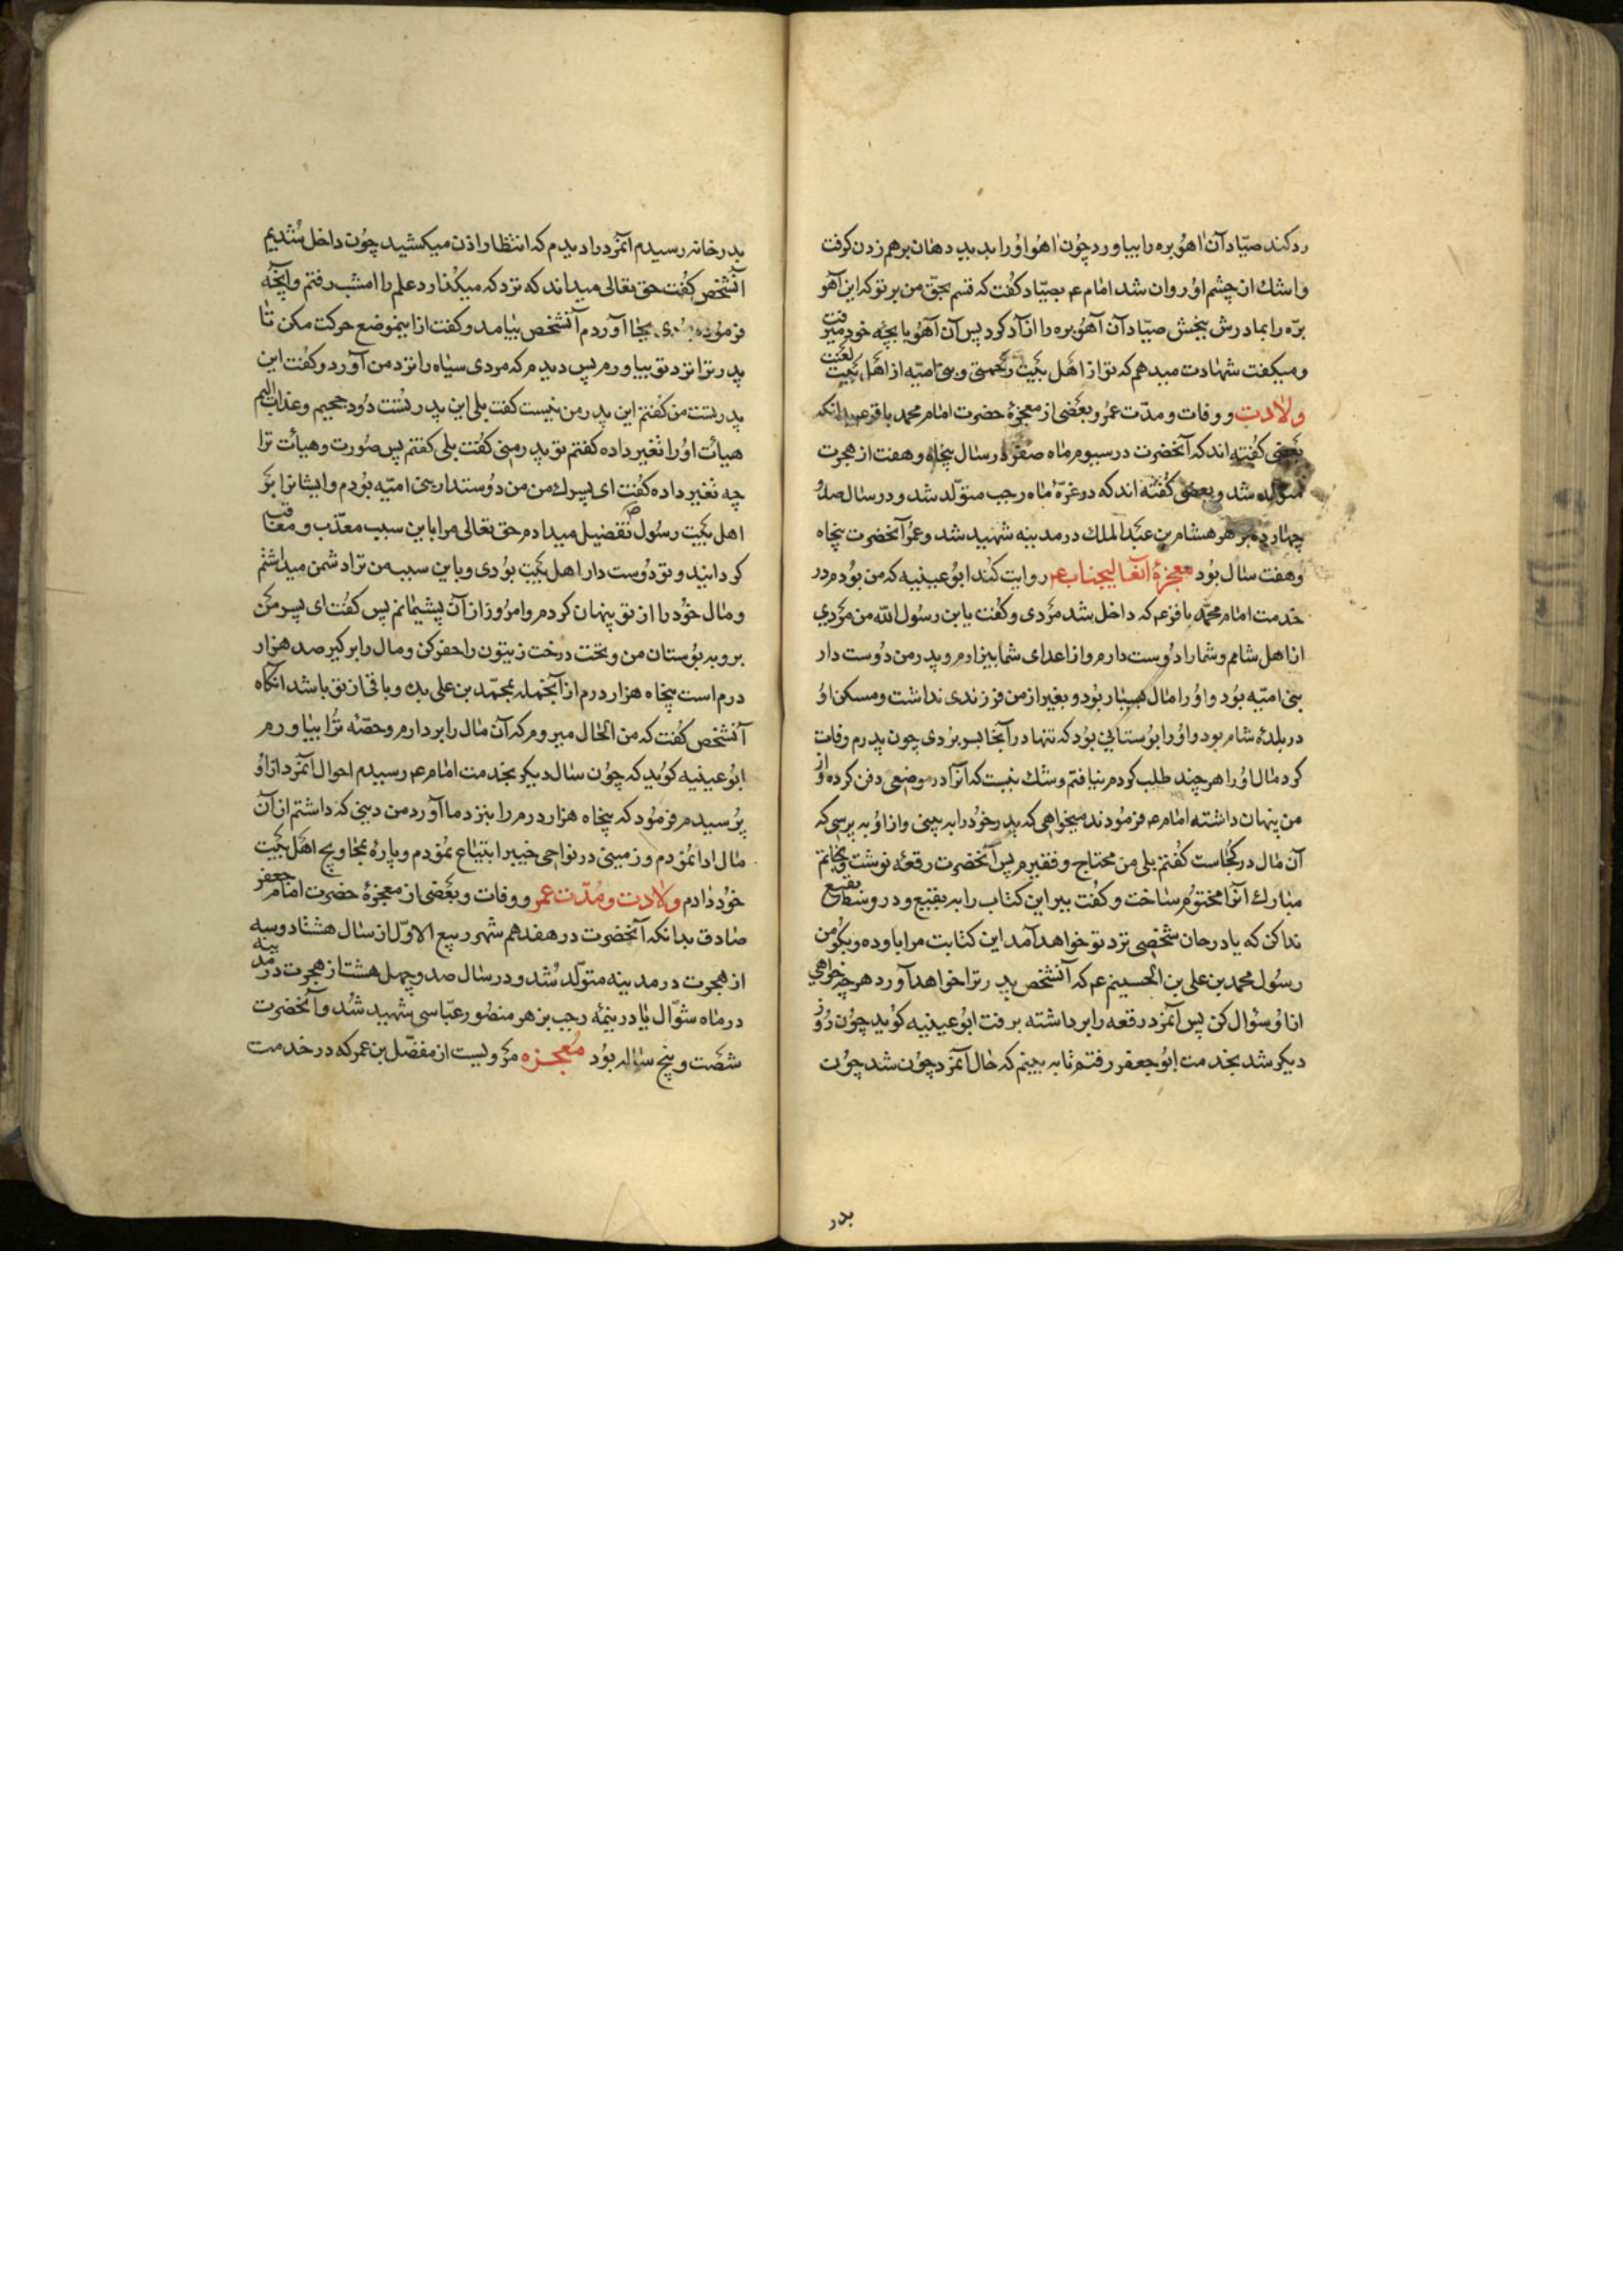 رد کند صیّاد آن اهو بره را بیاورد چون اهو او را بدید دهان بر هم زدن کرفت
و اشك از چشم او روان شد امام عم بصیّاد کفت که قسم بحقّ من بر تو که این آهو
برّه را بمادرش ببخش صیّاد آن آهو بره را ازآد کرد پس آن آهو با بچه خود میرفت
و میکفت شهادت میدهم که تو از اهل بیت رحمتی و بنی امیّه از اهل بیت لعنت
ولادت و وفات و مدّت عمر و بعضی از معجزهٔ حضرت امام محمد باقر عم بدانکه
بعضی کفته اند که آنحضرت در سیوم ماه صفر در سال پنجاه و هفت از هجرت
متولد شد و بعضی کفته اند که در غرّهٔ ماه رجب متوّلد شد و در سال صد و
چهارده بزهر هشام بن عبد الملك در مدینه شهید شد و عمر آنحضرت پنجاه
و هفت سال بود معجزهٔ آنعالیجناب عم روایت کند ابو عیینیه که من بودم در
خدمت امام محمّد باقر عم که داخل شد مردی و کفت یابن رسول الله من مردی
از اهل شامم و شما را دوست دارم و از اعدای شما بیزارم و پدر من دوست دار
بنی امیّه بود و او را مال بسیار بود و بغیر از من فرزندی نداشت و مسکن او
در بلدهٔ شام بود و او را بوستانی بود که تنها در آنجا بسر بردی چون پدرم وفات
کرد مال او را هر چند طلب کردم نیافتم و شك نیست که آنرا در موضعی دفن کرده و از
من پنهان داشته امام عم فرمودند میخواهی که پدر خود را به بینی و از او به پرسی که
آن مال در کجاست کفتم بلی من محتاج و فقیرم پس آنحضرت رقعهٔ نوشت و بخاتم
مبارك آنرا مختوم ساخت و کفت ببر این کتاب را به بقیع و در وسط بقیع
ندا کن که یا درحان شخصی نزد تو خواهد آمد این کتابت مرا باو ده و بکو من
رسول محمد بن علی بن الحسینم عم که آنشخص پدر ترا خواهد آورد هر چه خواهی
از او سؤال کن پس آنمرد رقعه را برداشته برفت ابو عیینیه کوید چون روز
دیکر شد بخدمت ابو جعفر رفتم تا به بینم که حال آنمرد چون شد چون
بدر
بدر خانه رسیدم آنمرد را دیدم که انتظار اذن میکشید چون داخل شدیم
آنشخص کفت حق تعالی میداند که نزد که میکذارد علم را امشب رفتم و آنچه
فرموده بودی بجا آوردم آنشخص بیامد و کفت از اینموضع حرکت مکن تا
پدر ترا نزد تو بیاورم پس دیدم که مردی سیاه را نزد من آورد و کفت این
پدر تست من کفتم این پدر من نیست کفت بلی این پدر تست دود جحیم و عذاب الیم
هیأت او را تغیر داده کفتم تو پدر منی کفت بلی کفتم پس صورت و هیأت ترا
چه تغیر داده کفت ای پسرك من من دوستدار بنی امیّه بودم و ایشانرا بر
اهل بیت رسول ص تفضیل میدادم حق تعالی مرا باین سبب معذّب و معاقب
کردانید و تو دوست دار اهل بیت بودی و باین سبب من ترا دشمن میداشتم
و مال خود را از تو پنهان کردم و امروز از آن پشیمانم پس کفت ای پسر من
برو به بوستان من و تحت درخت زیتون را حفر کن و مال را برکیر صد هزار
درم است پنجاه هزار درم از آنجمله بمحمّد بن علی بده و باقی از تو باشد انکاه
آنشخص کفت که من الحال میروم که آن مال را بردارم و حصّهٔ ترا بیاورم
ابو عیینیه کوید که چون سال دیکر بخدمت امام عم رسیدم احوال آنمرد از او
پرسیدم فرمود که پنجاه هزار درم را بنزد ما آورد من دینی که داشتم از آن
مال ادا نمودم و زمینی در نواحی خیبر ابتیاع نمودم و پارهٔ بمحاویج اهل بیت
خود دادم ولادت و مدّت عمر و وفات و بعضی از معجزهٔ حضرت امام جعفر
صادق بدانکه آنحضرت در هفدهم شهر ربیع الاوّل از سال هشتاد و سه
از هجرت در مدینه متوّلد شد و در سال صد و چهل هشت از هجرت در مدینه
در ماه شوّال یا در نیمهٔ رجب بزهر منصور عبّاسی شهید شد و آنحضرت
شصت و پنج ساله بود معجزه مرویست از مفضّل بن عمر که در خدمت